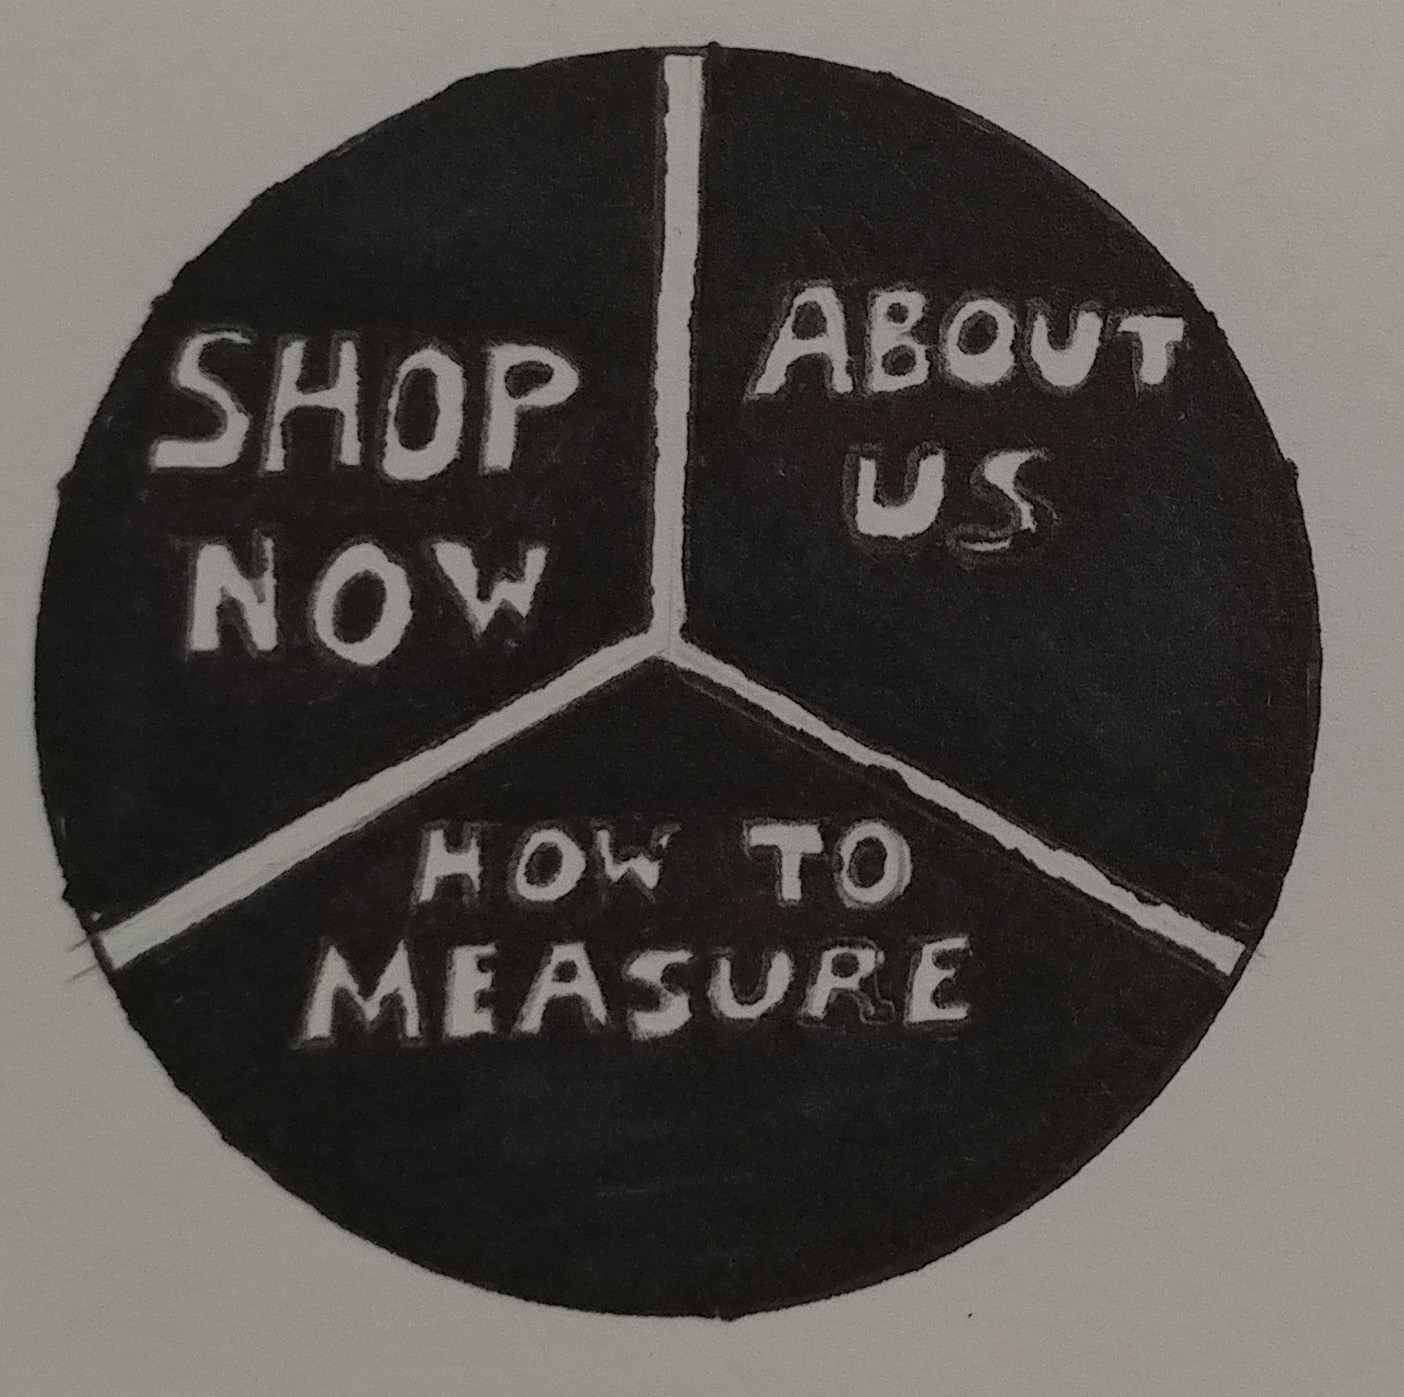 SHOP
NOW
ABOUT
US
HOW TO
MEASURE